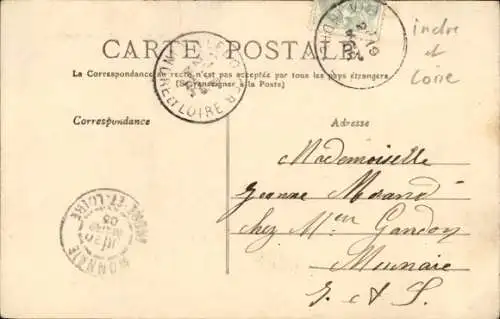 CARTE POSTALE
indre
et
Loire
La Correspondance au recto n'est pas acceptée par tous les pays étrangers
(Se renseigner à la Poste)
INDRE ET LOIRE
Correspondance
Adresse
Mademoiselle
Jeanne Morand
chez Mr Gandon
Monnaie
I. et L.
MONNAIE
INDRE-ET-LOIRE
05